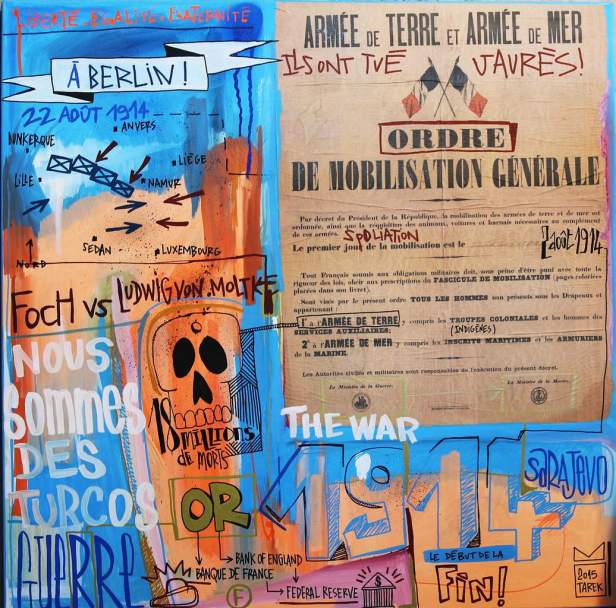 LIBERTÉ. EGALITÉ. FRATERNITÉ
À BERLIN !
22 AOÛT 1914
ANVERS
DUNKERQUE
LILLE
LIÈGE
NAMUR
SEDAN
LUXEMBOURG
NORD
FOCH VS LUDWIG VON MOLTKE
NOUS
SOMMES
DES
TURCOS
GUERRE
18 MILLIONS
DE MORTS
OR
BANK OF ENGLAND
BANQUE DE FRANCE
FEDERAL RESERVE
$
F
ARMÉE DE TERRE ET ARMÉE DE MER
ILS ONT TUÉ JAURÈS!
ORDRE
DE MOBILISATION GÉNÉRALE
Par décret du Président de la République, la mobilisation des armées de terre et de mer est
ordonnée, ainsi que la réquisition des animaux, voitures et harnais nécessaires au complément
de ces armées.
SPOLIATION
Le premier jour de la mobilisation est le
AOÛT 1914
Tout Français soumis aux obligations militaires doit, sous peine d'être puni avec toute la
rigueur des lois, obéir aux prescriptions du FASCICULE DE MOBILISATION (pages coloriées
placées dans son livret).
Sont visés par le présent ordre TOUS LES HOMMES non présents sous les Drapeaux et
appartenant :
1° à l'ARMÉE DE TERRE y compris les TROUPES COLONIALES et les hommes des
SERVICES AUXILIAIRES;
(INDIGÈNES)
2° à l'ARMÉE DE MER y compris les INSCRITS MARITIMES et les ARMURIERS
de la MARINE.
Les Autorités civiles et militaires sont responsables de l'exécution du présent décret.
Le Ministre de la Guerre,
Le Ministre de la Marine,
THE WAR
1914
SARAJEVO
LE DÉBUT DE LA
FIN!
2015
TAREK